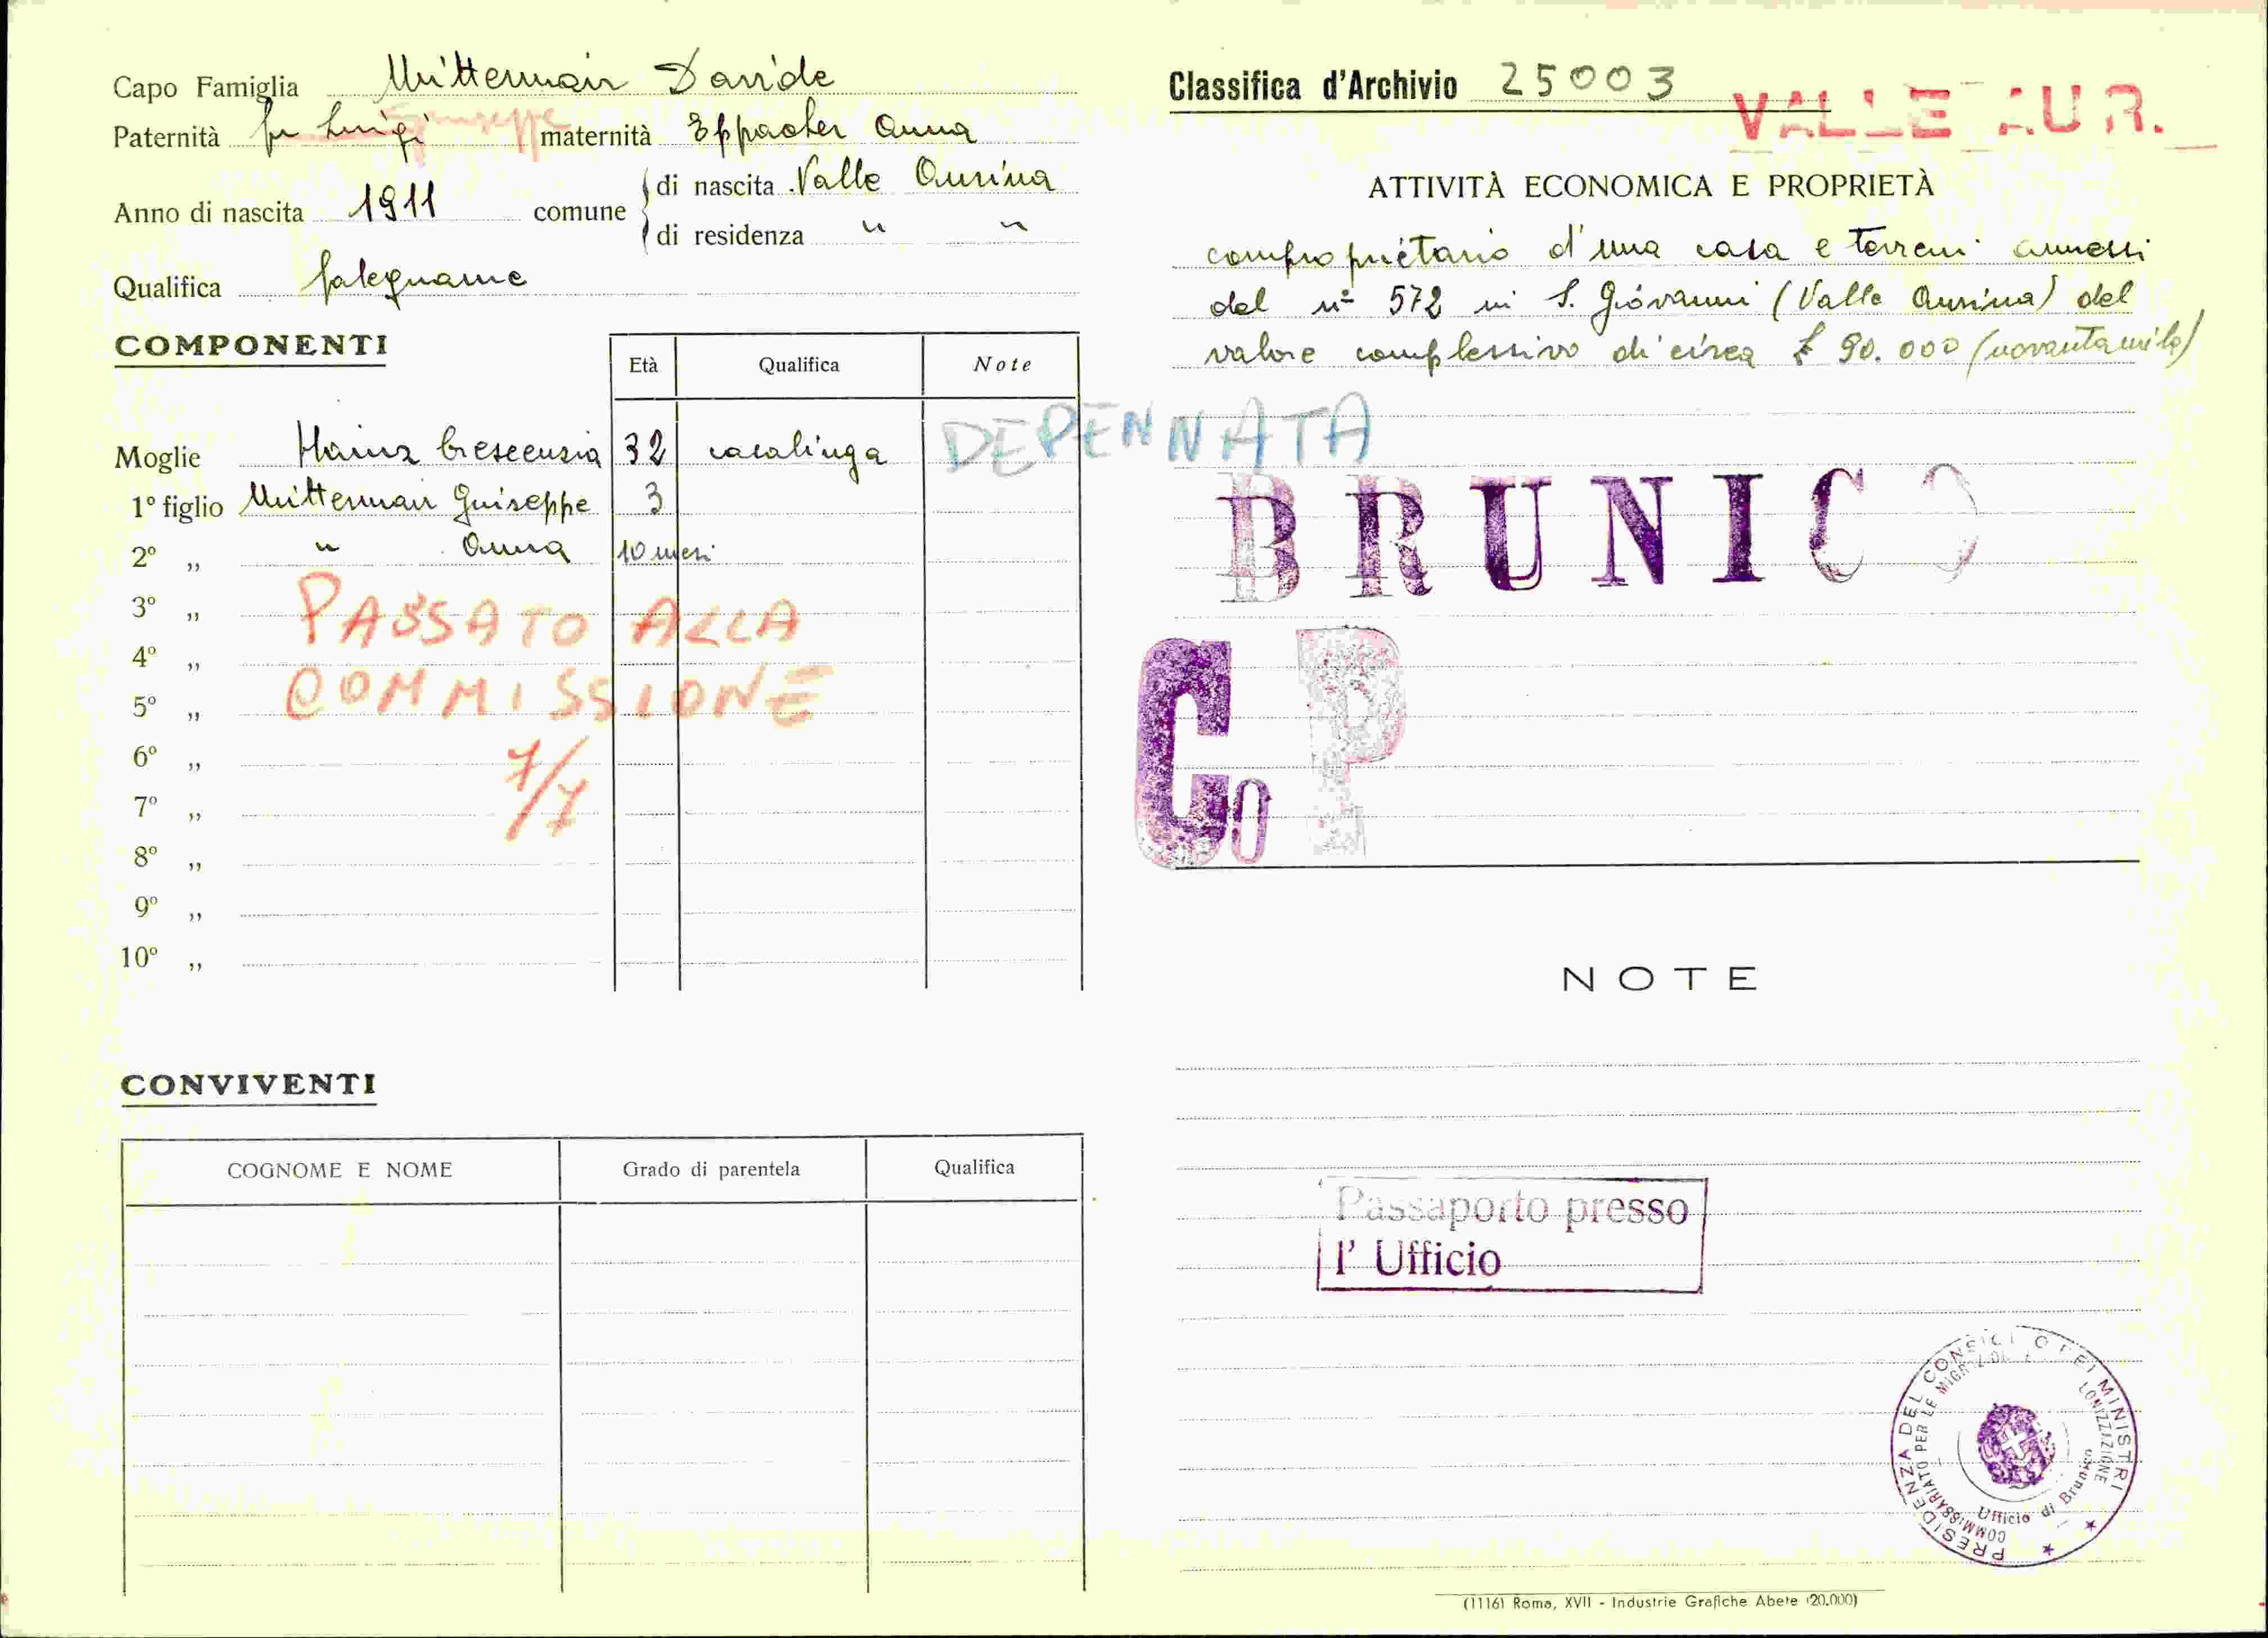 Capo Famiglia Mittermair Davide
Paternità fu Luigi Giuseppe maternità Eppacher Anna
Anno di nascita 1911 comune di nascita Valle Aurina
di residenza " "
Qualifica falegname
COMPONENTI
Età Qualifica Note
Moglie Mainz Crescenzia 32 casalinga DEPENNATA
1º figlio Mittermair Guiseppe 3
2º „ " Anna 10 mesi
3º „
4º „
5º „
6º „
7º „
8º „
9º „
10º „
PASSATO ALLA
COMMISSIONE
7/7
CONVIVENTI
COGNOME E NOME Grado di parentela Qualifica
Classifica d'Archivio 25003
VALLE AUR.
ATTIVITÀ ECONOMICA E PROPRIETÀ
comproprietario d'una casa e terreni annessi
del nº 572 in S. Giovanni (Valle Aurina) del
valore complessivo di circa £ 90.000 (novantamila)
BRUNICO
Co P
NOTE
Passaporto presso
l' Ufficio
PRESIDENZA DEL CONSIGLIO DEI MINISTRI
COMMISSARIATO PER LE MIGRAZIONI
COLONIZZAZIONE
Ufficio di Brunico
(1116) Roma, XVII - Industrie Grafiche Abete (20.000)